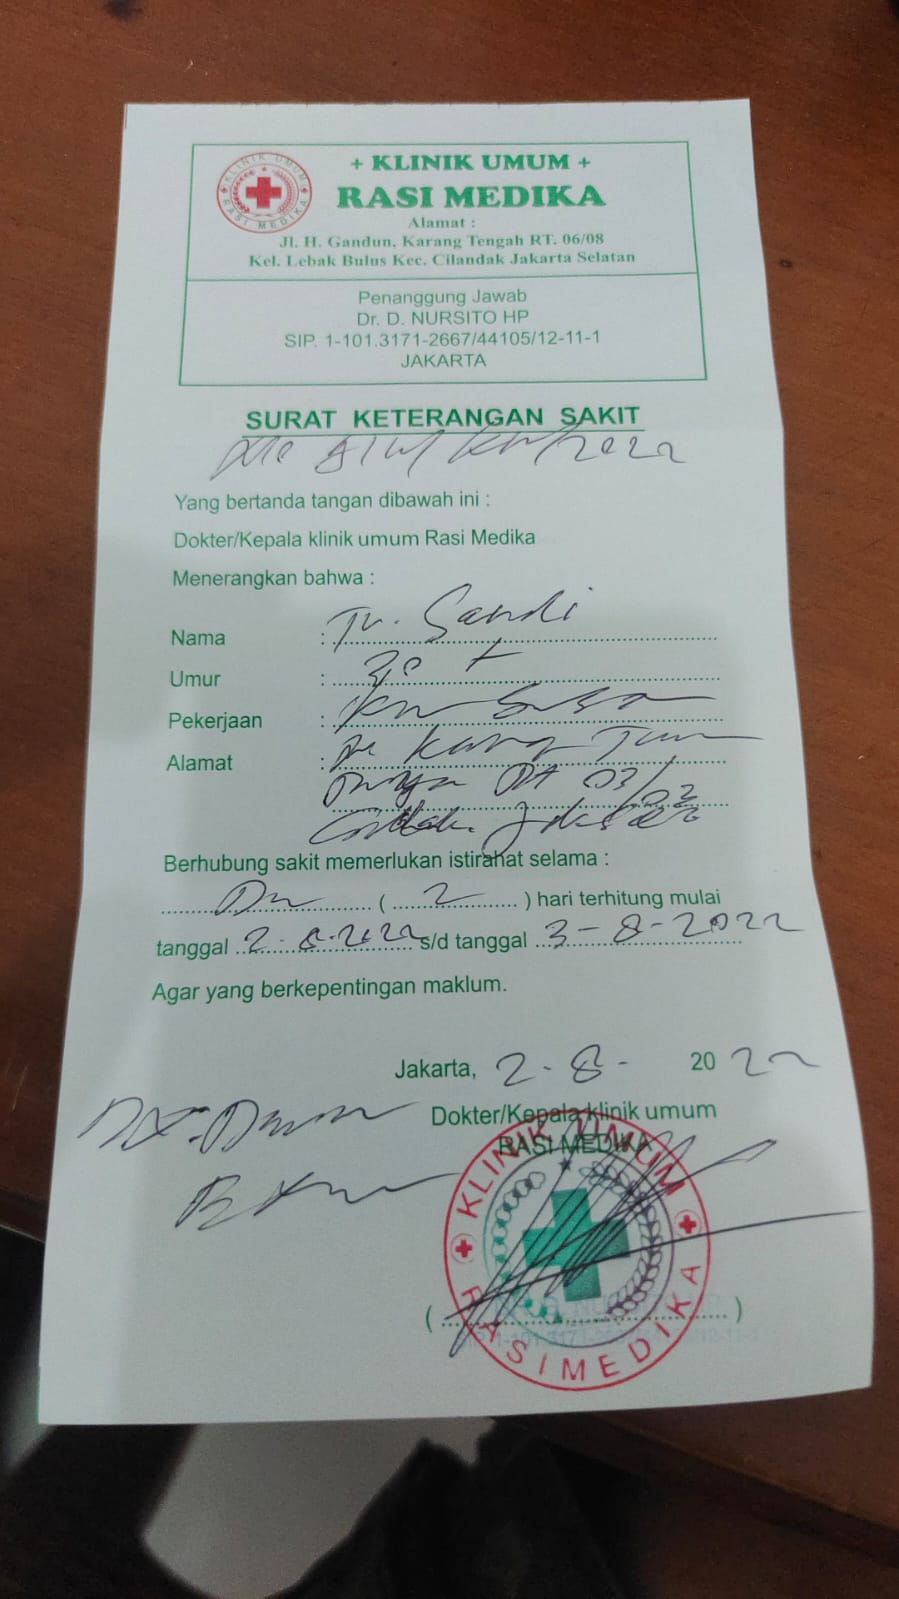 + KLINIK UMUM +
RASI MEDIKA
Alamat :
Jl. H. Gandun, Karang Tengah RT. 06/08
Kel. Lebak Bulus Kec. Cilandak Jakarta Selatan
KLINIK UMUM RASI MEDIKA
Penanggung Jawab
Dr. D. NURSITO HP
SIP. 1-101.3171-2667/44105/12-11-1
JAKARTA
SURAT KETERANGAN SAKIT
/2022
Yang bertanda tangan dibawah ini :
Dokter/Kepala klinik umum Rasi Medika
Menerangkan bahwa :
Nama : Tn. Sandi
Umur :
Pekerjaan :
Alamat :
03/
02
Berhubung sakit memerlukan istirahat selama :
( 2 ) hari terhitung mulai
tanggal 2-8-2022 s/d tanggal 3-8-2022
Agar yang berkepentingan maklum.
Jakarta, 2-8- 2022
Dokter/Kepala klinik umum
RASI MEDIKA
KLINIK UMUM
RASI MEDIKA